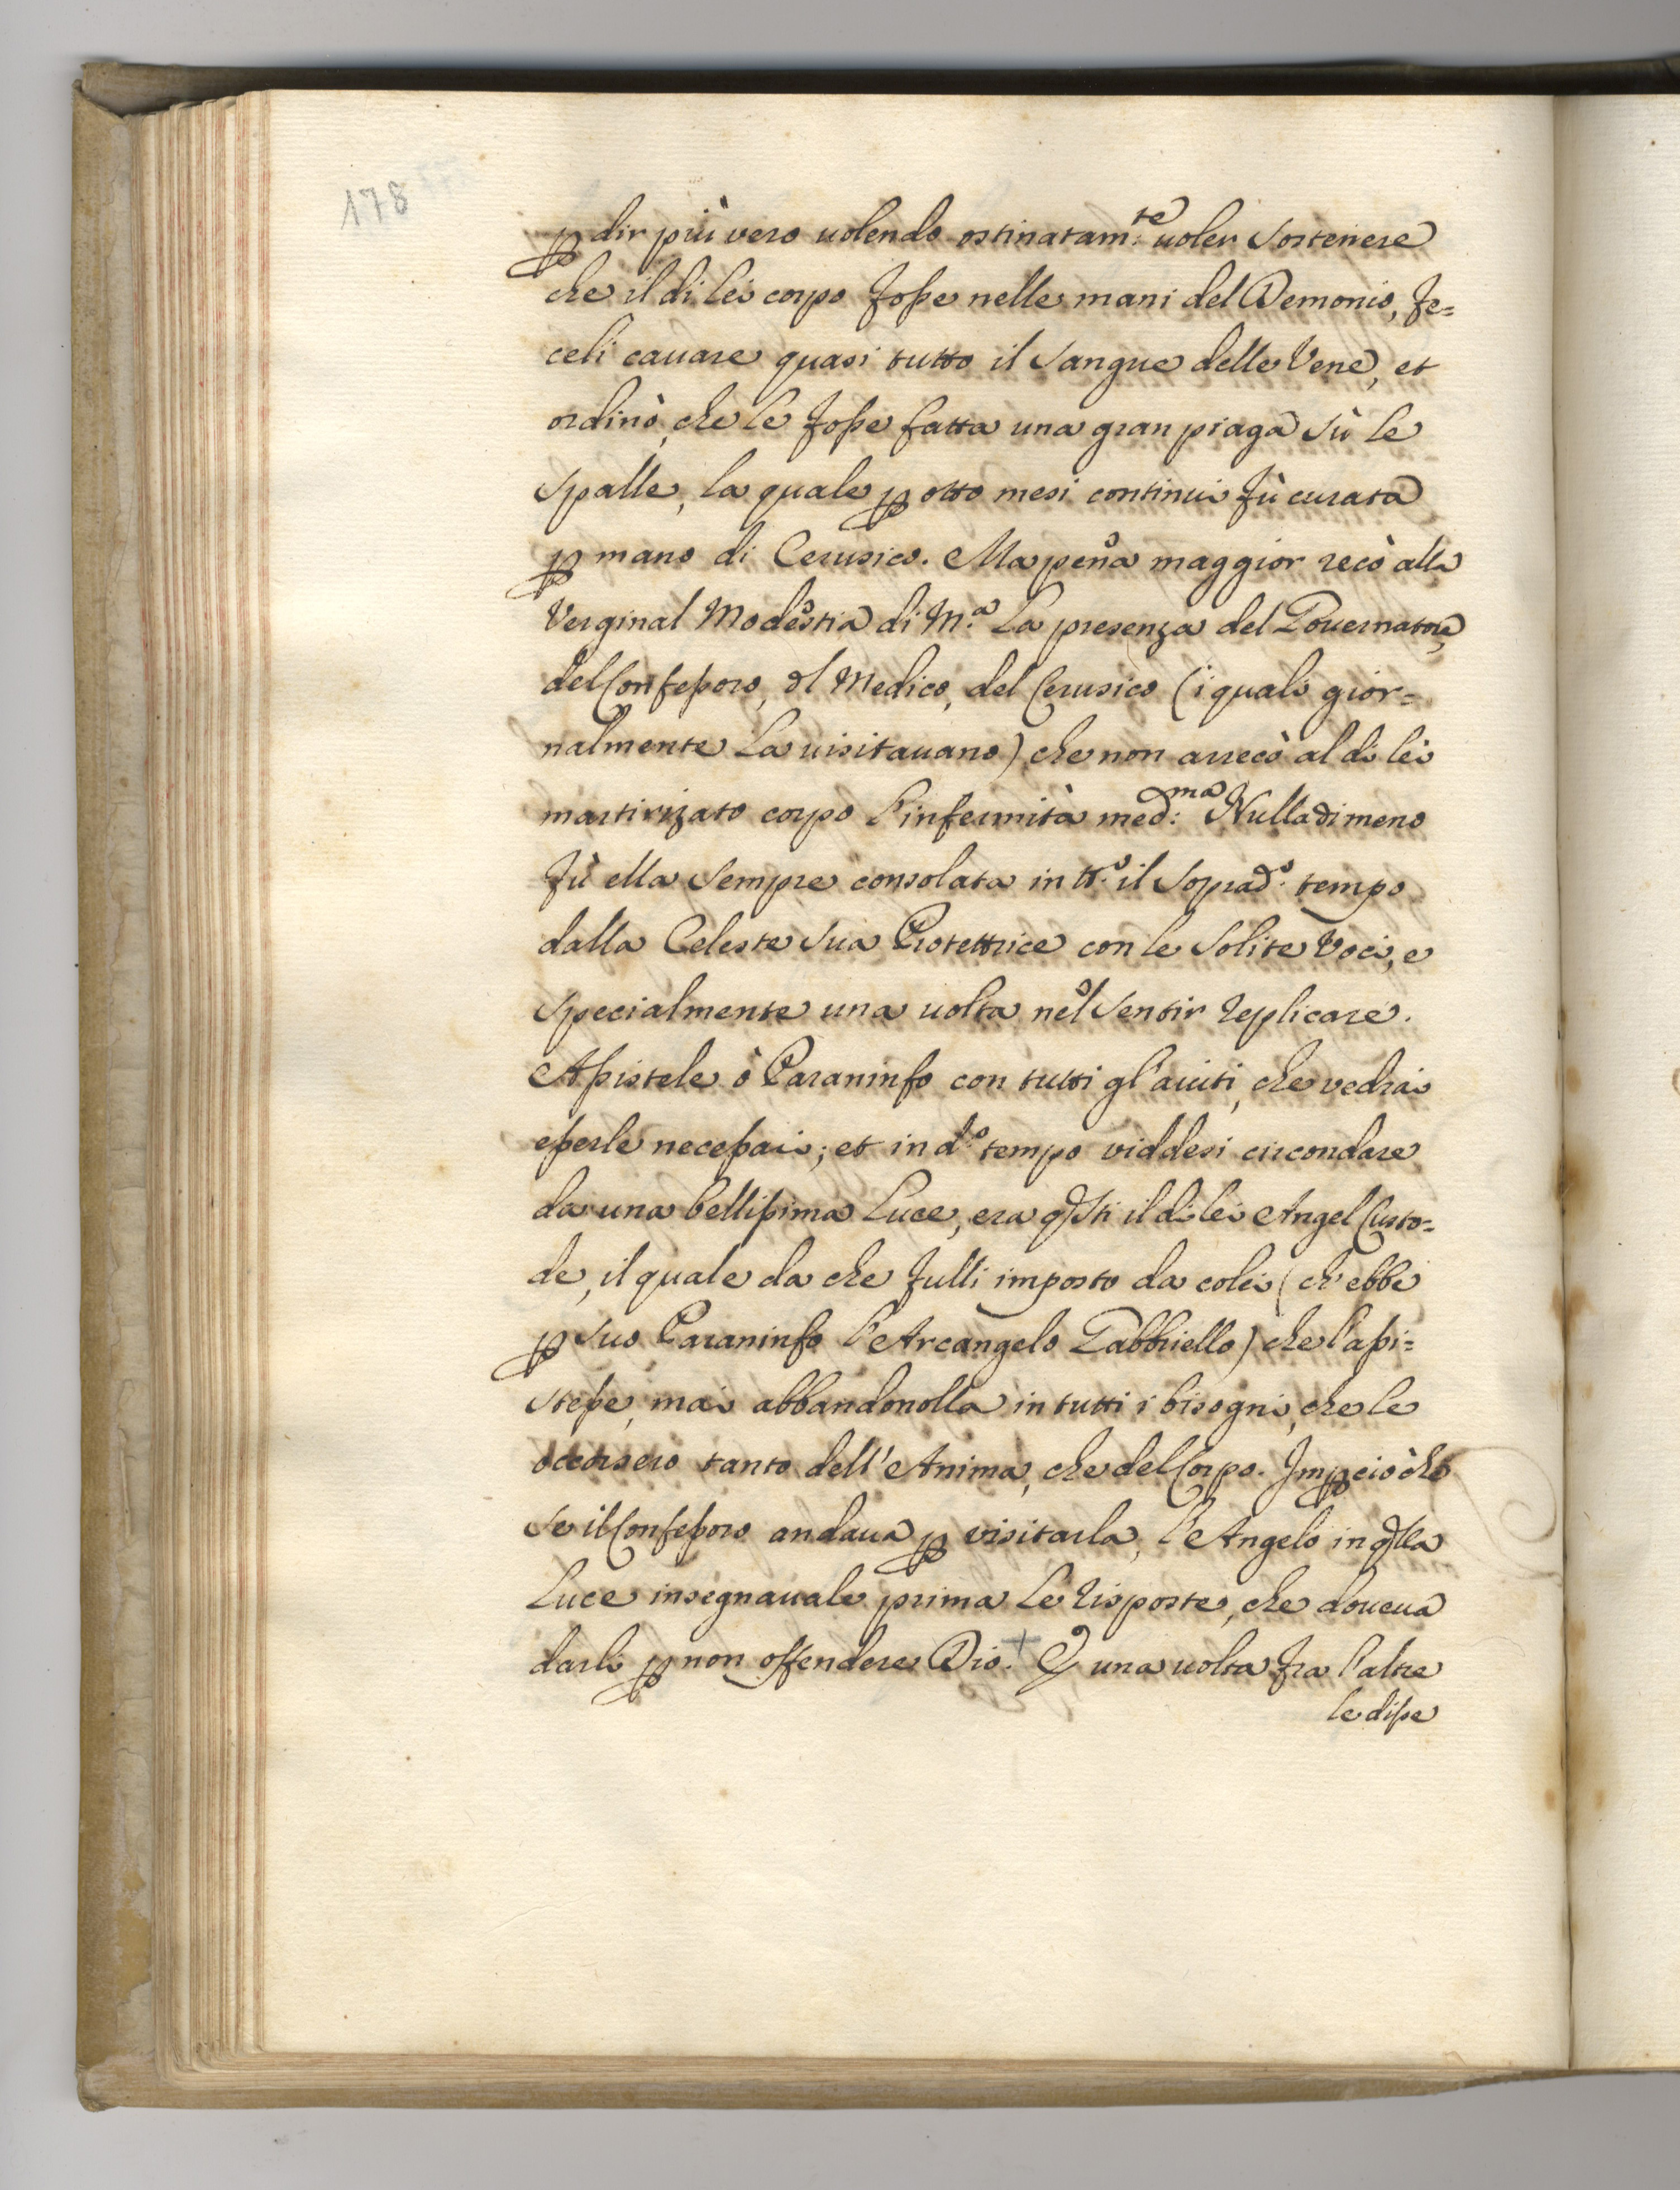 178
ꝑ dir più vero uolendo ostinatam:te uoler sostenere
che il di lei corpo fosse nelle mani del Demonio, fe=
celi cauare quasi tutto il sangue delle Vene, et
ordinò, che le fosse fatta una gran piaga sù le
spalle, la quale ꝑ otto mesi continui fù curata
ꝑ mano di Cerusico. Ma pena maggior recò alla
Verginal Modestia di M.a La presenza del Gouernatore,
del Confessoro, dl Medico, del Cerusico (i quali gior=
nalmente La uisitauano) che non arrecò al di lei
martirizato corpo l'infermità med:ma Nulladimeno
fù ella sempre consolata in tt.o il soprad.o tempo
dalla Celeste sua Protettrice con le solite Voci, e
specialmente una uolta nel sentir replicare.
Assistele ò Paraninfo con tutti gl'aiuti, che vedrai
esserle necessari; et in d.o tempo viddesi circondare
da una bellissima Luce, era qsti il di lei Angel Custo=
de, il quale da che fulli imposto da colei (ch'ebbe
ꝑ suo Paraninfo l'Arcangelo Gabbriello) che l'assi=
stesse, mai abbandonolla in tutti i bisogni, che le
occorsero tanto dell'Anima, che del Corpo. Imꝑciòche
se il Confessoro andaua ꝑ visitarla, l'Angelo in qlla
Luce insegnauale prima Le risposte, che doueua
darli ꝑ non offendere Dio. + E una uolta fra l'altre
le disse